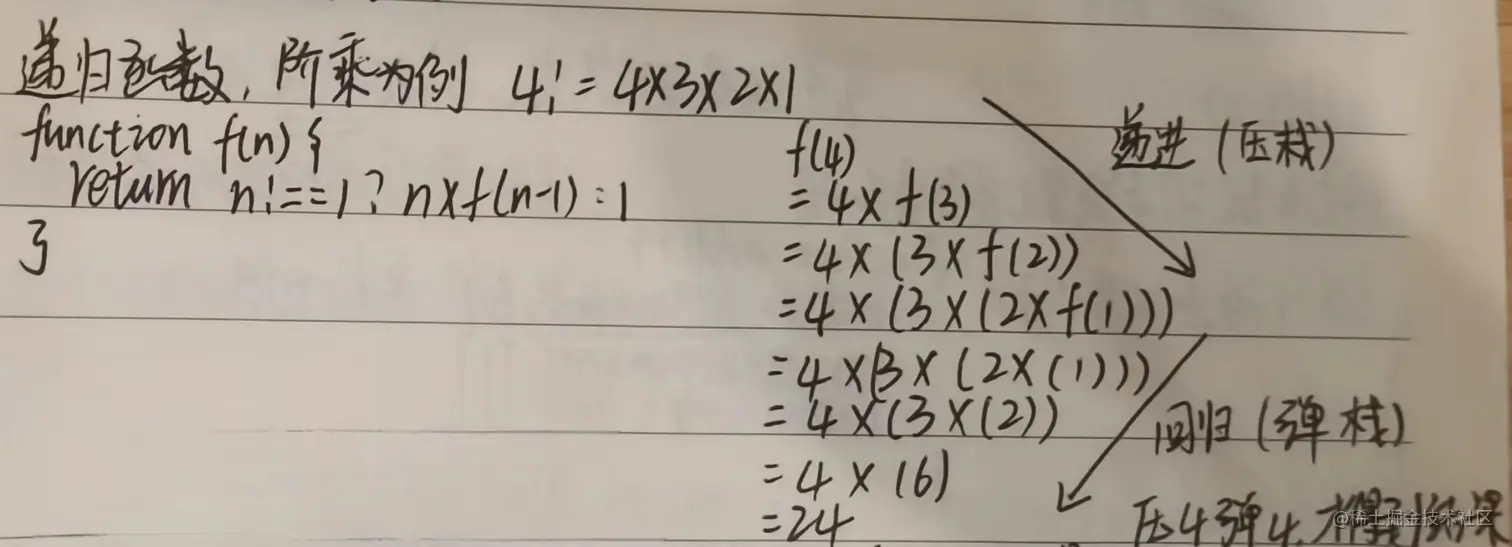 递归函数,阶乘为例 4!=4×3×2×1
function f(n) {
return n!==1? n×f(n-1):1
}
f(4)
=4×f(3)
=4×(3×f(2))
=4×(3×(2×f(1)))
=4×(3×(2×(1)))
=4×(3×(2))
=4×(6)
=24
递进(压栈)
回归(弹栈)
压4弹4,才得到结果
@稀土掘金技术社区